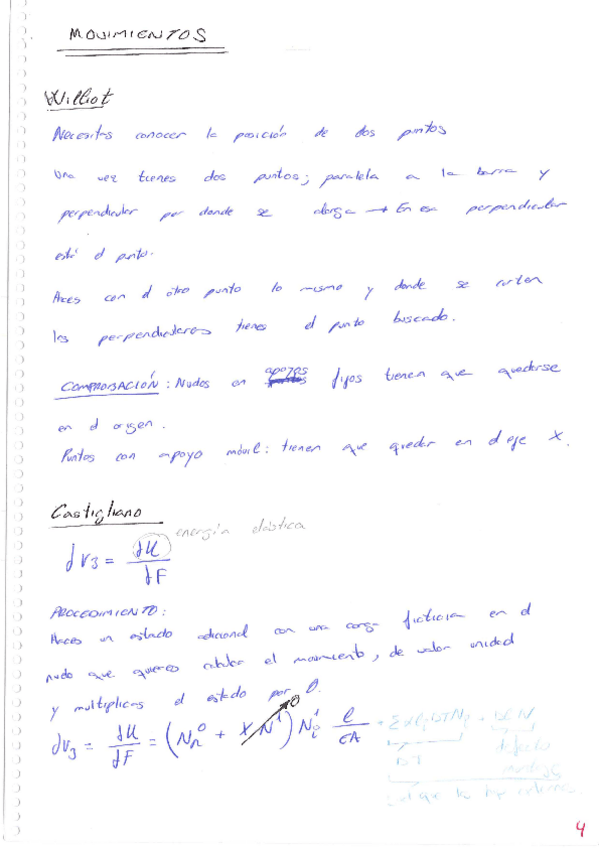 MOVIMIENTOS
Williot
Necesitas conocer la posición de dos puntos
Una vez tienes dos puntos; paralela a la barra y
perpendicular por donde se alarga → En esa perpendicular
está el punto.
Haces con el otro punto lo mismo y donde se corten
las perpendiculares tienes el punto buscado.
COMPROBACIÓN: Nudos en apoyos fijos tienen que quedarse
en el origen.
Puntos con apoyo móvil: tienen que quedar en el eje X.
Castigliano
energía elástica
∂v3 = ∂U / ∂F
PROCEDIMIENTO:
Haces un estado adicional con una carga ficticia en el
nudo que quieres calcular el movimiento, de valor unidad
y multiplicas el estado por θ.
∂v3 = ∂U / ∂F = (N⁰ + X N¹) N¹ᵢ ℓ / EA
ΔT
defecto
montaje
4